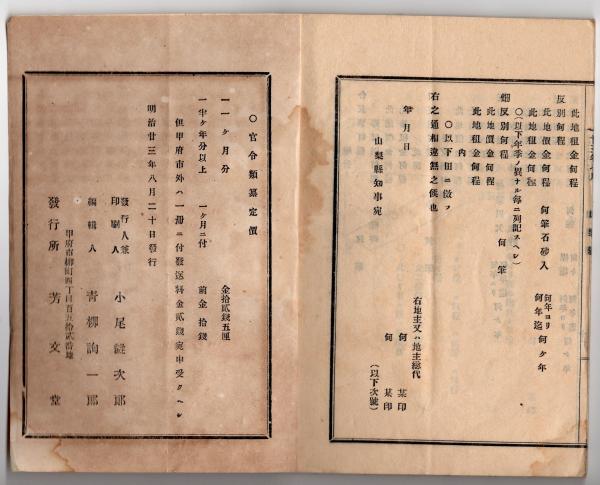 此地租金何程
反別何程
此地價金何程 何筆石砂入 何年ヨリ何年迄何ヶ年
此地租金何程
〇(以下年季ノ異ナル毎ニ列記スヘシ)
畑反別何程 何筆
此地價金何程
此地租金何程
内
〇以下田ニ倣フ
右之通相違無之候也
年月日
右地主又ハ地主總代
何 某印
何 某印
山梨縣知事宛
(以下次號)
〇官令類纂定價
一一ヶ月分 金拾貳錢五厘
一半ヶ年分以上 一ヶ月ニ付 前金拾錢
但甲府市外ハ一冊ニ付發送料金貳錢宛申受クヘシ
明治廿三年八月二十日發行
發行人兼印刷人 小尾 次郎
編輯人 青柳詢一郎
甲府市柳町四丁目百五拾貳番地
發行所 芳文堂